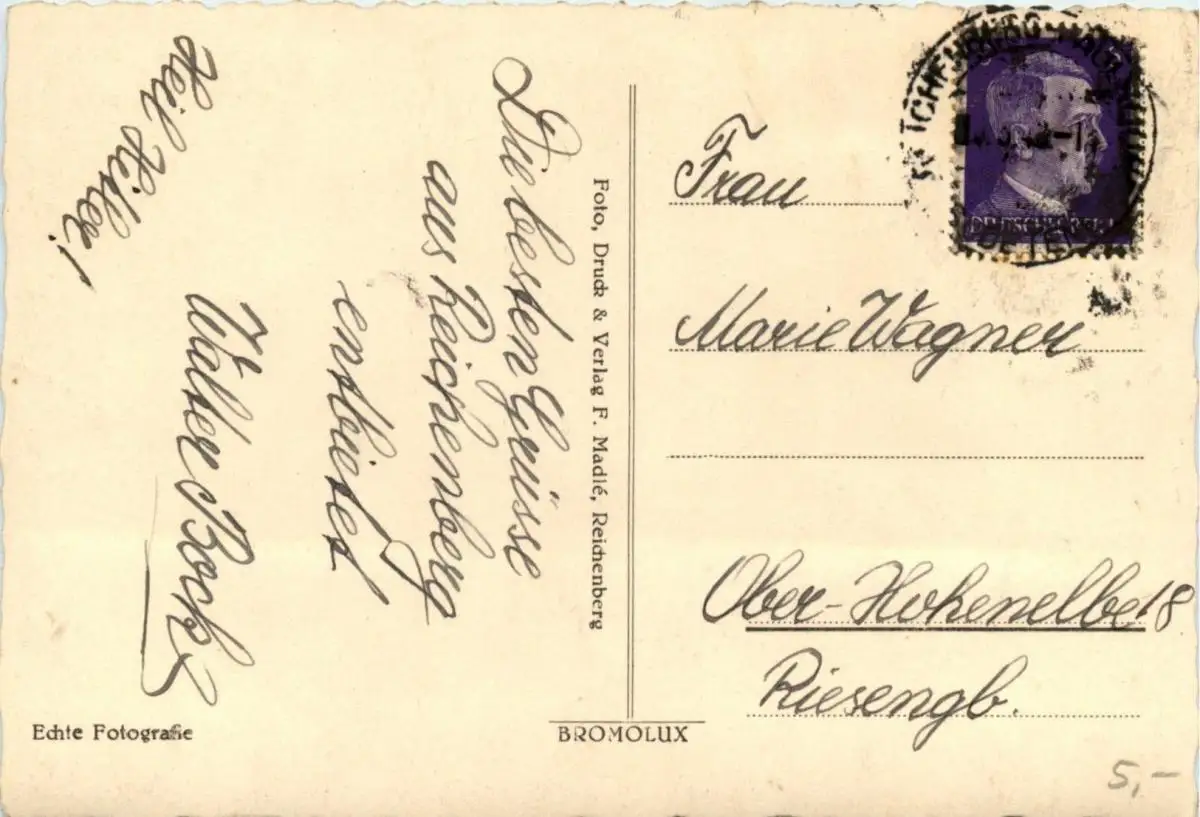 Die besten Grüsse
aus Reichenberg
entbietet
Walter Bock
Heil Hitler!
Foto, Druck & Verlag F. Madlé, Reichenberg
Echte Fotografie
BROMOLUX
Frau
Marie Wagner
Ober-Hohenelbe 18
Riesengb.
DEUTSCHES REICH
5,-